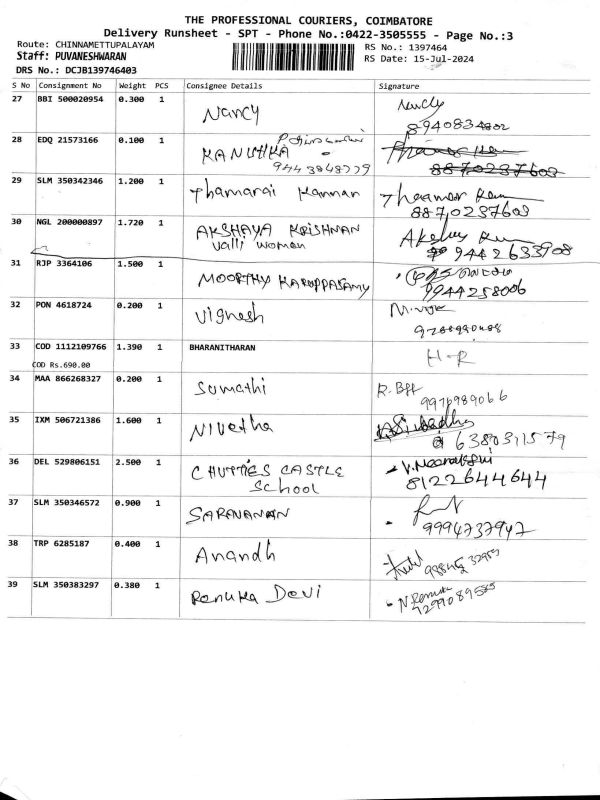 THE PROFESSIONAL COURIERS, COIMBATORE
Delivery Runsheet - SPT - Phone No.:0422-3505555 - Page No.:3
Route: CHINNAMETTUPALAYAM
RS No.: 1397464
Staff: PUVANESHWARAN
RS Date: 15-Jul-2024
DRS No.: DCJB139746403
S No Consignment No Weight PCS Consignee Details Signature
27 BBI 500020954 0.300 1 Nancy Nancy
8940834802
28 EDQ 21573166 0.100 1 KANITHKA
9443848779
8870237603
29 SLM 350342346 1.200 1 Thamarai Kannan
8870237603
30 NGL 200000897 1.720 1 AKSHAYA KRISHNAN
Valli woman 9442633908
31 RJP 3364106 1.500 1 MOORTHY KARUPPASAMY
9944258006
32 PON 4618724 0.200 1 Vignesh
33 COD 1112109766 1.390 1 BHARANITHARAN
COD Rs.690.00 H-R
34 MAA 866268327 0.200 1 Sumathi
9976989066
35 IXM 506721386 1.600 1 Nivetha
6380311579
36 DEL 529806151 2.500 1 CHUTTIES CASTLE
School 8122644644
37 SLM 350346572 0.900 1 SARAVANAN
9994737947
38 TRP 6285187 0.400 1 Anandh
39 SLM 350383297 0.380 1 Renuka Devi N.Renuka